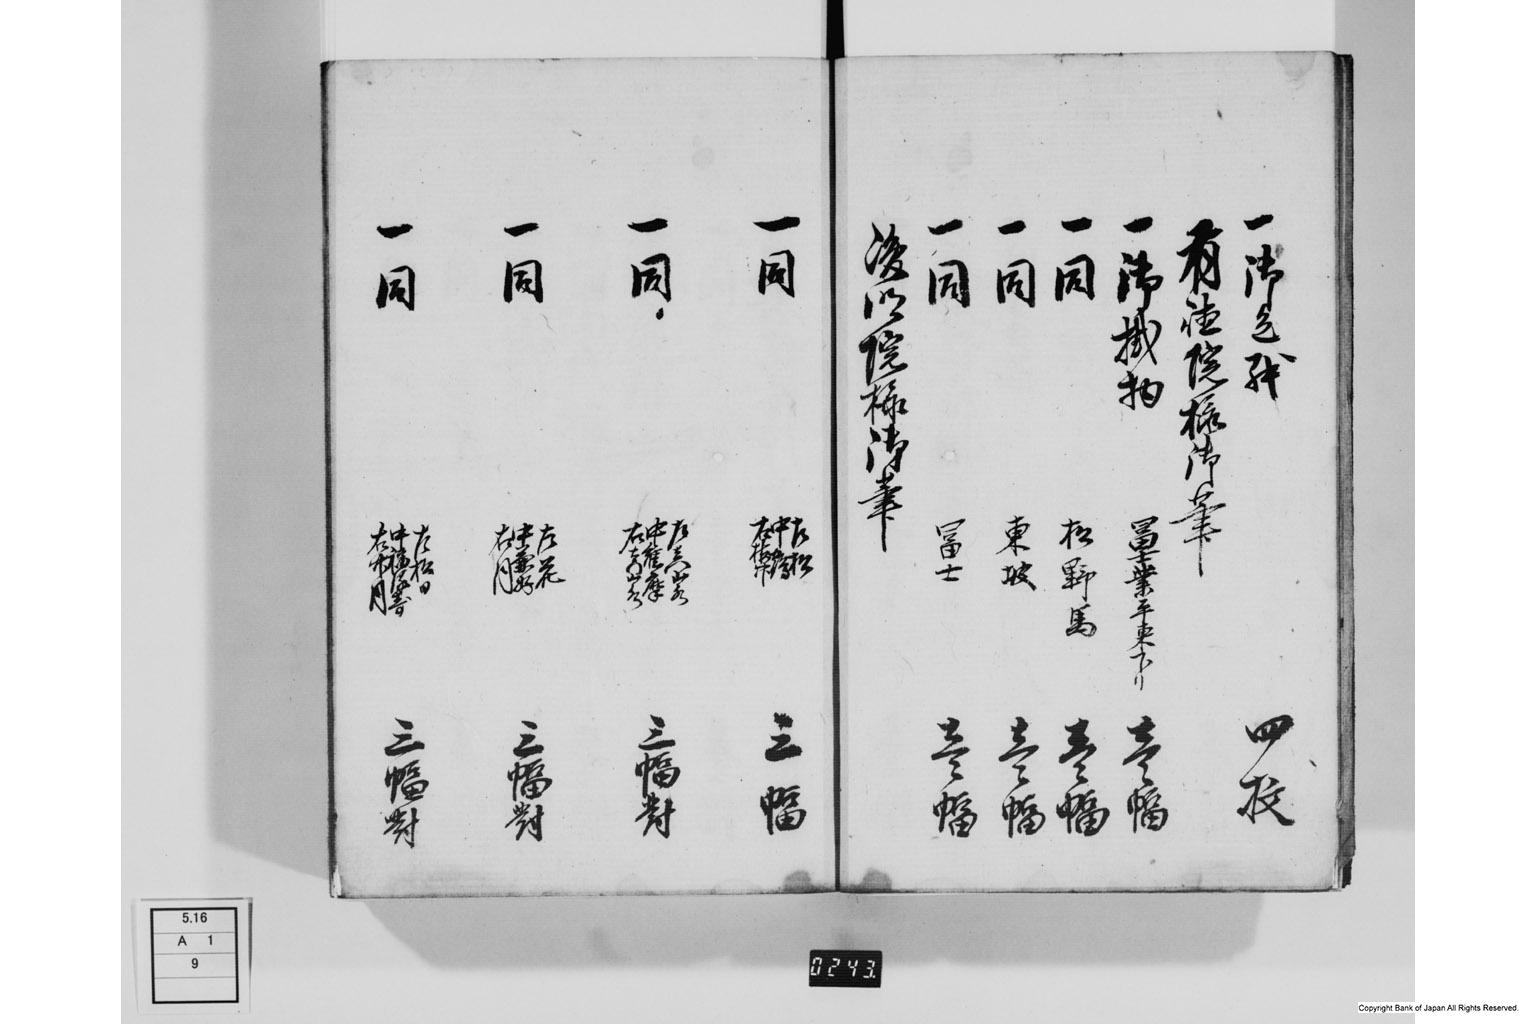 一御色紙 四枚
有徳院様御筆
一御掛物 冨士業平東下り 壱幅
一同 牧野馬 壱幅
一同 東坡 壱幅
一同 冨士 壱幅
浚明院様御筆
一同 左松 中 右 三幅
一同 左山水 中達摩 右山水 三幅對
一同 左花 中 右月 三幅對
一同 左松日 中福禄寿 右月 三幅對
5.16
A 1
9
0243.
Copyright Bank of Japan All Rights Reserved.